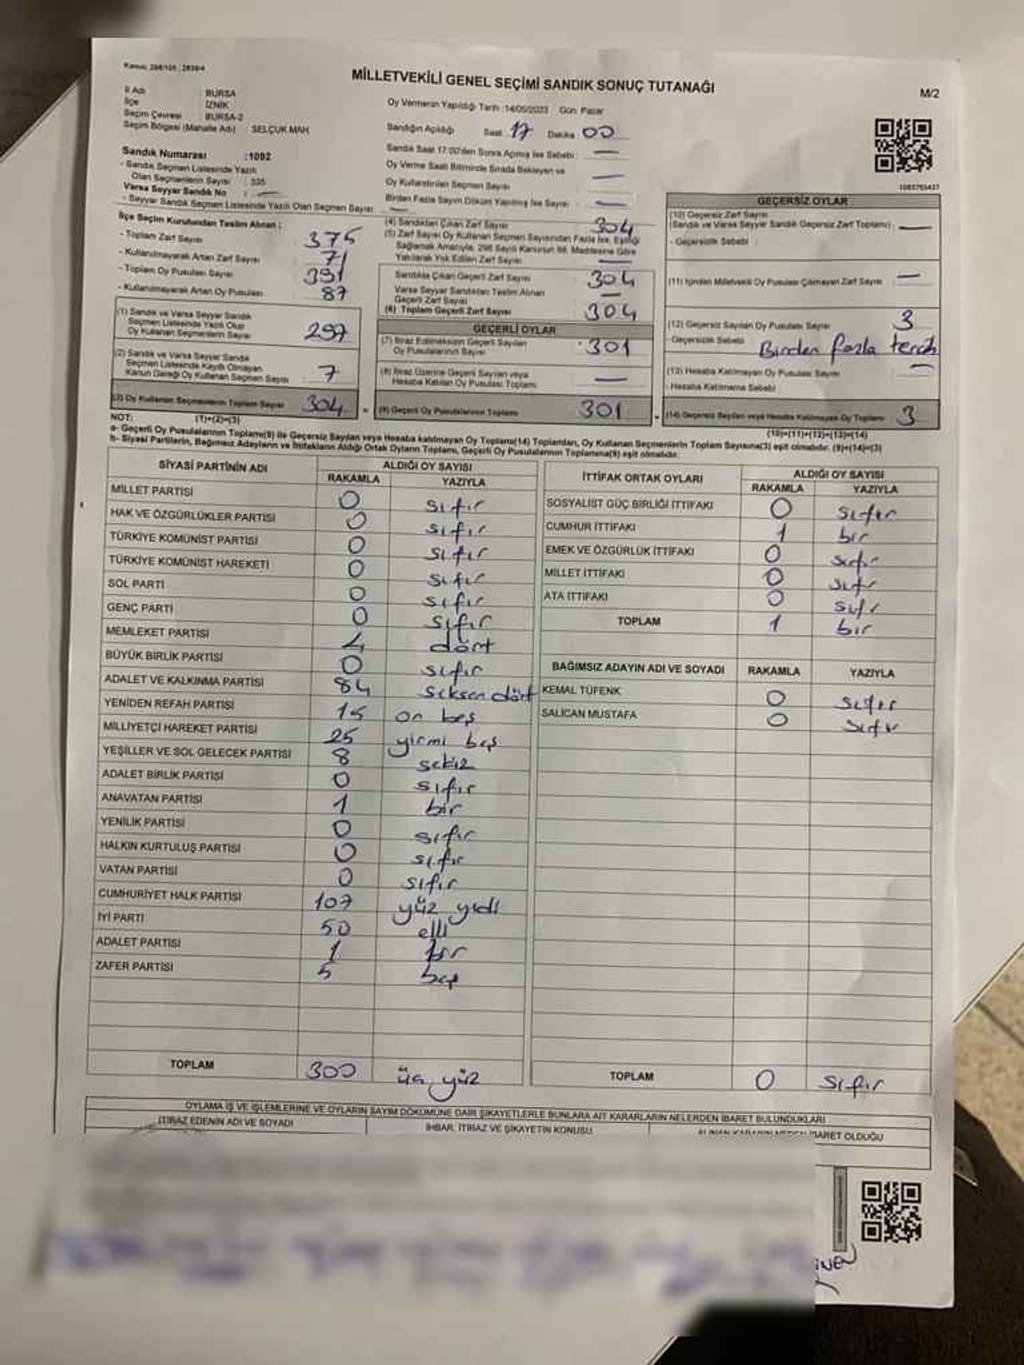 Kanun: 298/105 ; 2839/4
MİLLETVEKİLİ GENEL SEÇİMİ SANDIK SONUÇ TUTANAĞI
M/2
İl Adı : BURSA
İlçe : İZNİK
Seçim Çevresi : BURSA-2
Seçim Bölgesi (Mahalle Adı) : SELÇUK MAH
Sandık Numarası :1092
- Sandık Seçmen Listesinde Yazılı
Olan Seçmenlerin Sayısı : 335
Varsa Seyyar Sandık No : —
- Seyyar Sandık Seçmen Listesinde Yazılı Olan Seçmen Sayısı: —
Oy Vermenin Yapıldığı Tarih :14/05/2023 Gün: Pazar
Sandığın Açıldığı Saat: 17 Dakika: 00
Sandık Saat 17:00'den Sonra Açılmış İse Sebebi : —
Oy Verme Saati Bitiminde Sırada Bekleyen ve
Oy Kullandırılan Seçmen Sayısı —
Birden Fazla Sayım Döküm Yapılmış İse Sayısı : —
İlçe Seçim Kurulundan Teslim Alınan :
- Toplam Zarf Sayısı : 375
- Kullanılmayarak Artan Zarf Sayısı : 71
- Toplam Oy Pusulası Sayısı : 391
- Kullanılmayarak Artan Oy Pusulası : 87
(1) Sandık ve Varsa Seyyar Sandık
Seçmen Listesinde Yazılı Olup
Oy Kullanan Seçmenlerin Sayısı : 297
(2) Sandık ve Varsa Seyyar Sandık
Seçmen Listesinde Kayıtlı Olmayan
Kanun Gereği Oy Kullanan Seçmen Sayısı : 7
(3) Oy Kullanan Seçmenlerin Toplam Sayısı : 304
(4) Sandıktan Çıkan Zarf Sayısı : 304
(5) Zarf Sayısı Oy Kullanan Seçmen Sayısından Fazla İse, Eşitliği
Sağlamak Amacıyla, 298 Sayılı Kanunun 98. Maddesine Göre
Yakılarak Yok Edilen Zarf Sayısı : —
Sandıkta Çıkan Geçerli Zarf Sayısı : 304
Varsa Seyyar Sandıktan Teslim Alınan
Geçerli Zarf Sayısı : —
(6) Toplam Geçerli Zarf Sayısı : 304
GEÇERLİ OYLAR
(7) İtiraz Edilmeksizin Geçerli Sayılan
Oy Pusulalarının Sayısı : 301
(8) İtiraz Üzerine Geçerli Sayılan veya
Hesaba Katılan Oy Pusulası Toplamı : —
(9) Geçerli Oy Pusulalarının Toplamı : 301
1092763437
GEÇERSİZ OYLAR
(10) Geçersiz Zarf Sayısı
(Sandık ve Varsa Seyyar Sandık Geçersiz Zarf Toplamı) : —
- Geçersizlik Sebebi :
(11) İçinden Milletvekili Oy Pusulası Çıkmayan Zarf Sayısı : —
(12) Geçersiz Sayılan Oy Pusulası Sayısı : 3
- Geçersizlik Sebebi : Birden fazla tercih
(13) Hesaba Katılmayan Oy Pusulası Sayısı : —
- Hesaba Katılmama Sebebi :
(14) Geçersiz Sayılan veya Hesaba Katılmayan Oy Toplamı : 3
NOT: (1)+(2)=(3) (10)+(11)+(12)+(13)=(14)
a- Geçerli Oy Pusulalarının Toplamı(9) ile Geçersiz Sayılan veya Hesaba katılmayan Oy Toplamı(14) Toplamları, Oy Kullanan Seçmenlerin Toplam Sayısına(3) eşit olmalıdır. (9)+(14)=(3)
b- Siyasi Partilerin, Bağımsız Adayların ve İttifakların Aldığı Ortak Oyların Toplamı, Geçerli Oy Pusulalarının Toplamına(9) eşit olmalıdır.
SİYASİ PARTİNİN ADI ALDIĞI OY SAYISI
RAKAMLA YAZIYLA
MİLLET PARTİSİ 0 sıfır
HAK VE ÖZGÜRLÜKLER PARTİSİ 0 sıfır
TÜRKİYE KOMÜNİST PARTİSİ 0 sıfır
TÜRKİYE KOMÜNİST HAREKETİ 0 sıfır
SOL PARTİ 0 sıfır
GENÇ PARTİ 0 sıfır
MEMLEKET PARTİSİ 4 dört
BÜYÜK BİRLİK PARTİSİ 0 sıfır
ADALET VE KALKINMA PARTİSİ 84 seksen dört
YENİDEN REFAH PARTİSİ 15 on beş
MİLLİYETÇİ HAREKET PARTİSİ 25 yirmi beş
YEŞİLLER VE SOL GELECEK PARTİSİ 8 sekiz
ADALET BİRLİK PARTİSİ 0 sıfır
ANAVATAN PARTİSİ 1 bir
YENİLİK PARTİSİ 0 sıfır
HALKIN KURTULUŞ PARTİSİ 0 sıfır
VATAN PARTİSİ 0 sıfır
CUMHURİYET HALK PARTİSİ 107 yüz yedi
İYİ PARTİ 50 elli
ADALET PARTİSİ 1 bir
ZAFER PARTİSİ 5 beş
TOPLAM 300 üç yüz
İTTİFAK ORTAK OYLARI ALDIĞI OY SAYISI
RAKAMLA YAZIYLA
SOSYALİST GÜÇ BİRLİĞİ İTTİFAKI 0 sıfır
CUMHUR İTTİFAKI 1 bir
EMEK VE ÖZGÜRLÜK İTTİFAKI 0 sıfır
MİLLET İTTİFAKI 0 sıfır
ATA İTTİFAKI 0 sıfır
TOPLAM 1 bir
BAĞIMSIZ ADAYIN ADI VE SOYADI RAKAMLA YAZIYLA
KEMAL TÜFENK 0 sıfır
SALİCAN MUSTAFA 0 sıfır
TOPLAM 0 sıfır
OYLAMA İŞ VE İŞLEMLERİNE VE OYLARIN SAYIM DÖKÜMÜNE DAİR ŞİKAYETLERLE BUNLARA AİT KARARLARIN NELERDEN İBARET BULUNDUKLARI
İTİRAZ EDENİN ADI VE SOYADI İHBAR, İTİRAZ VE ŞİKAYETİN KONUSU ALINAN KARARIN NEDEN İBARET OLDUĞU